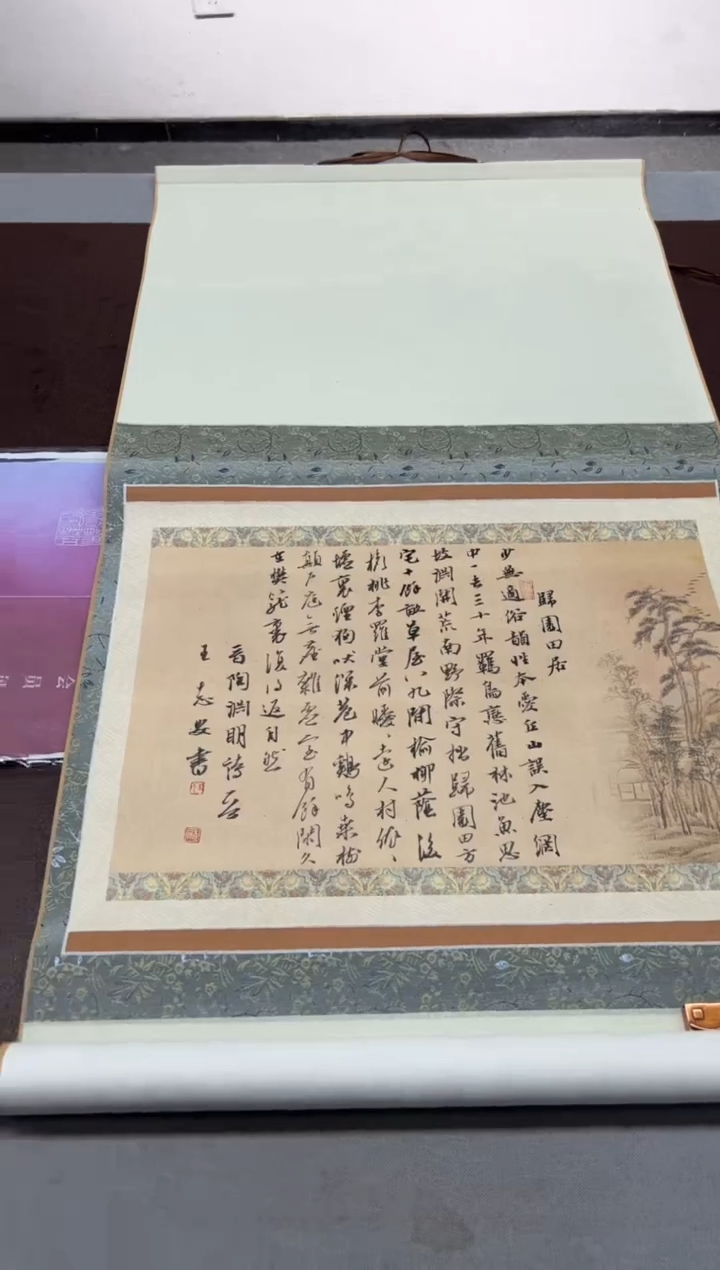 歸園田居
少無適俗韻性本愛丘山誤入塵網
中一去三十年羈鳥戀舊林池魚思
故淵開荒南野際守拙歸園田方
宅十餘畝草屋八九間榆柳蔭後
檐桃李羅堂前曖、遠人村依、
墟裏煙狗吠深巷中鷄鳴桑樹
顛戶庭無塵雜虛室有餘閑久
在樊籠裏復得返自然
晉陶淵明詩
王志安書